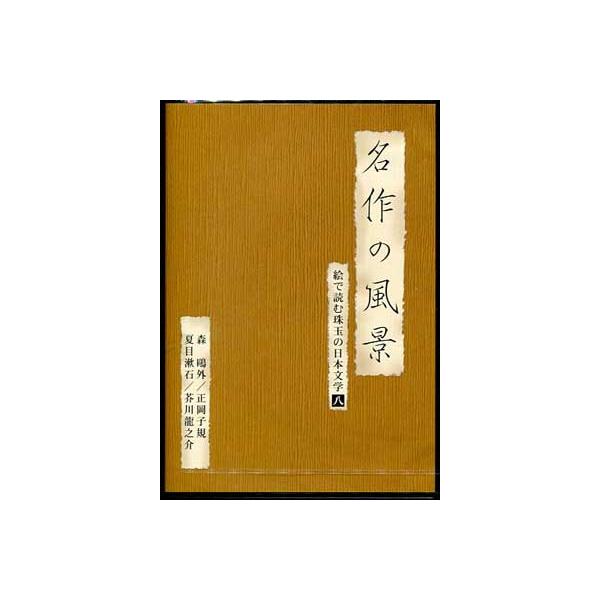 名作の風景
絵で読む珠玉の日本文学 八
森 鷗外／正岡子規
夏目漱石／芥川龍之介